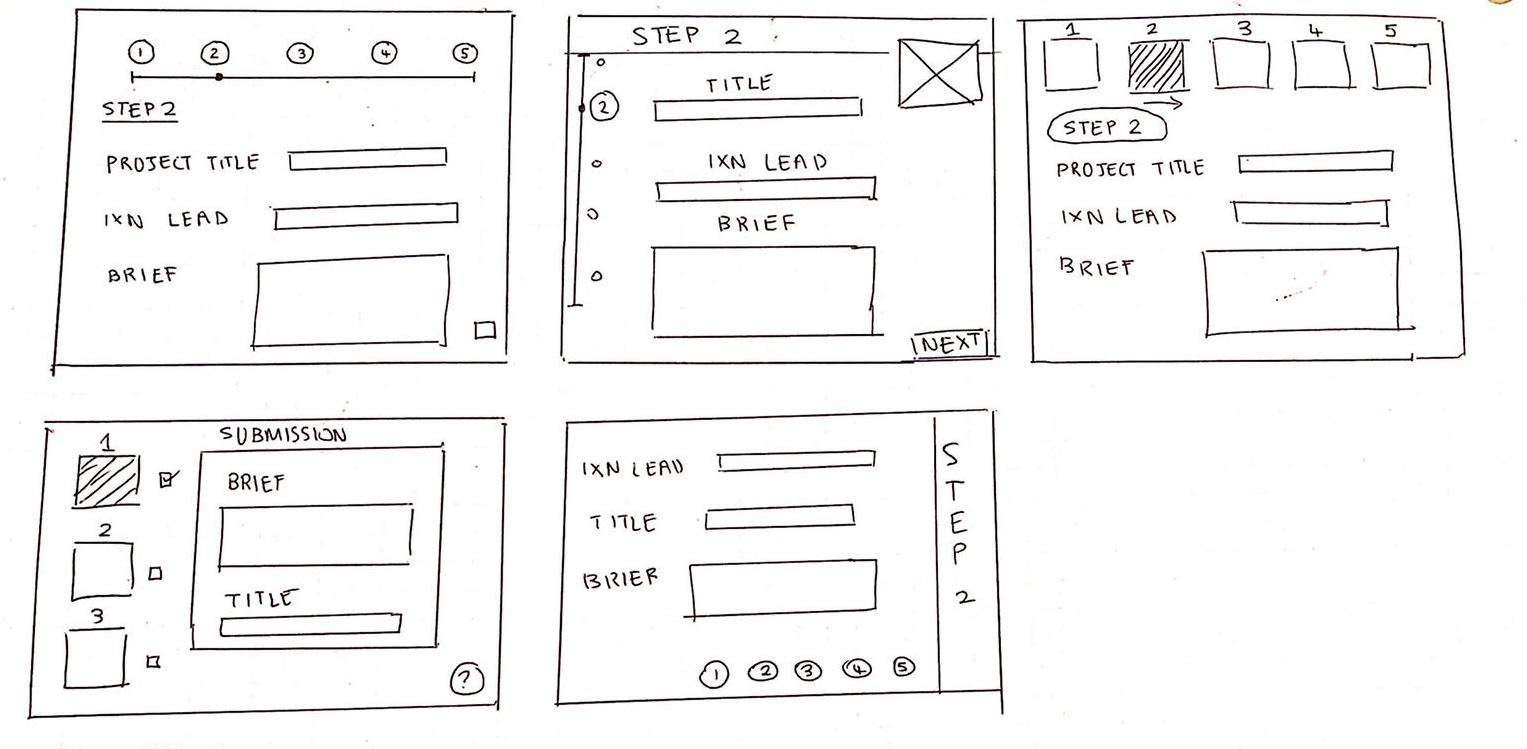 1 2 3 4 5
STEP 2
PROJECT TITLE
IXN LEAD
BRIEF
STEP 2
2
TITLE
IXN LEAD
BRIEF
NEXT
1 2 3 4 5
STEP 2
PROJECT TITLE
IXN LEAD
BRIEF
SUBMISSION
1
BRIEF
2
TITLE
3
?
IXN LEAD
TITLE
BRIEF
1 2 3 4 5
STEP 2